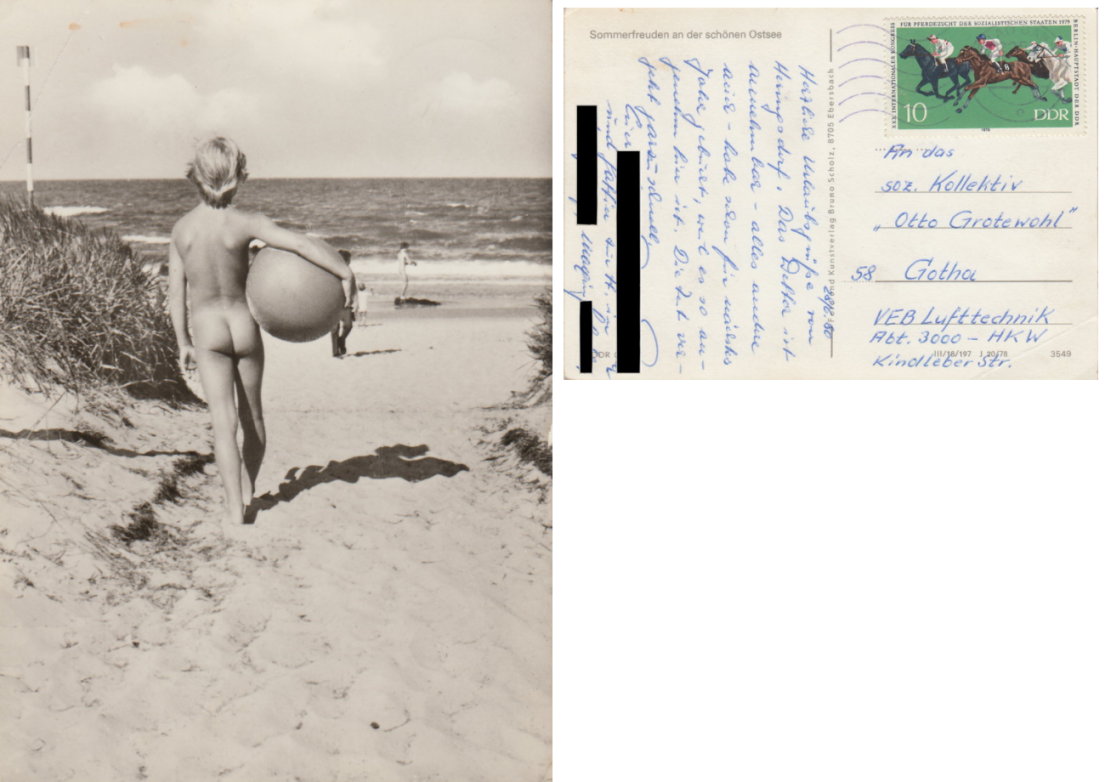 Sommerfreuden an der schönen Ostsee
Herzliche Urlaubsgrüße von
Heringsdorf. Das Wetter ist
annehmbar – alles andere
auch – habe schon für nächstes
Jahr gebucht, weil es so an-
genehm hier ist. Die Zeit ver-
geht ganz schnell
hier
und Gattin
28/6.80
Foto und Kunstverlag Bruno Scholz, 8705 Ebersbach
XXX. INTERNATIONALER KONGRESS
FÜR PFERDEZUCHT DER SOZIALISTISCHEN STAATEN 1978
BERLIN-HAUPTSTADT DER DDR
8
10
DDR
1978
An das
soz. Kollektiv
„Otto Grotewohl"
58 Gotha
VEB Lufttechnik
Abt. 3000 – HKW
Kindleber Str.
III/18/197 J 20/78
3549